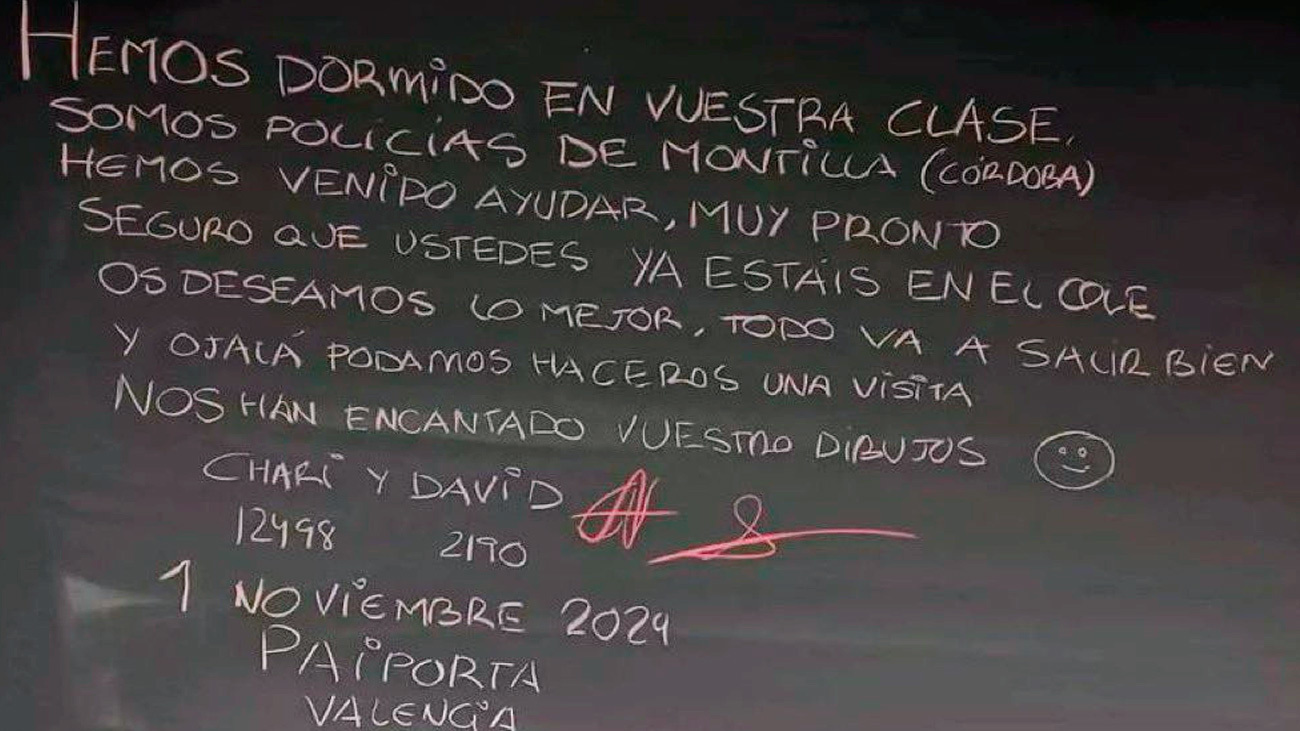 HEMOS DORMIDO EN VUESTRA CLASE.
SOMOS POLICÍAS DE MONTILLA (CÓRDOBA)
HEMOS VENIDO AYUDAR, MUY PRONTO
SEGURO QUE USTEDES YA ESTÁIS EN EL COLE
OS DESEAMOS LO MEJOR, TODO VA A SALIR BIEN
Y OJALÁ PODAMOS HACEROS UNA VISITA
NOS HAN ENCANTADO VUESTRO DIBUJOS
CHARI Y DAVID
12498 2190
1 NOVIEMBRE 2024
PAIPORTA
VALENCIA